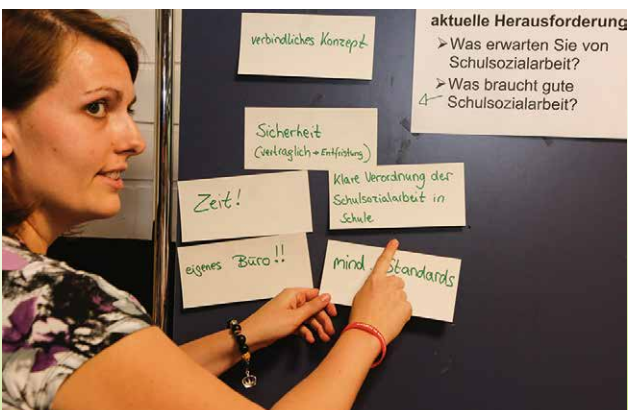 verbindliches Konzept
aktuelle Herausforderung
➤Was erwarten Sie von
Schulsozialarbeit?
➤Was braucht gute
Schulsozialarbeit?
Sicherheit
(vertraglich → Entfristung)
Zeit!
Klare Verordnung der
Schulsozialarbeit in
Schule
eigenes Büro!!
mind. Standards